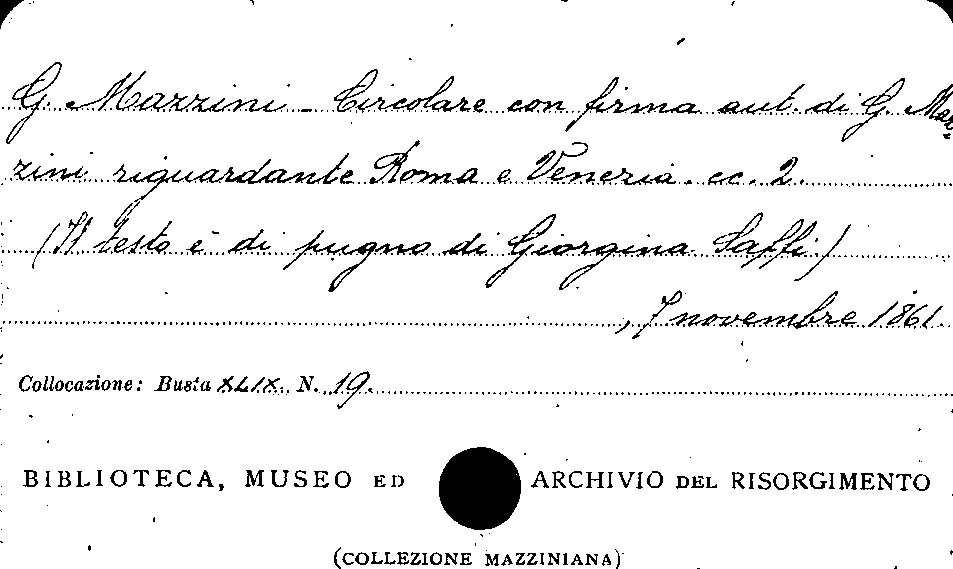 G. Mazzini - Circolare con firma aut. di G. Maz=
zini riguardante Roma e Venezia. cc. 2.
(Il testo è di pugno di Giorgina Saffi.)
, 7 novembre 1861.
Collocazione: Busta XLIX. N. 19.
BIBLIOTECA, MUSEO ED ARCHIVIO DEL RISORGIMENTO
(COLLEZIONE MAZZINIANA)